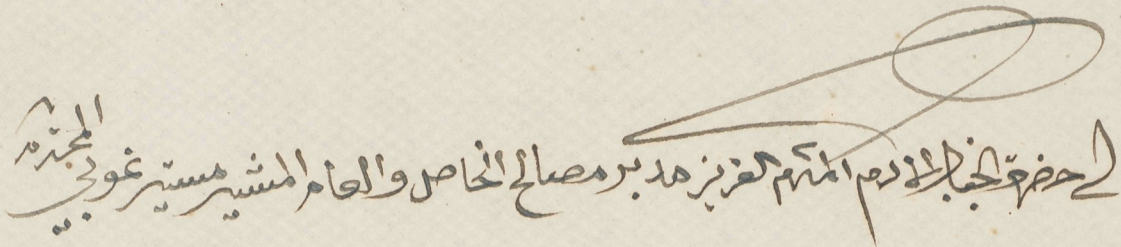 الى حضرة الجناب الاكرم المكرم العزيز مدبر مصالح الخاص والعام المشير مستير غوبي المحترم